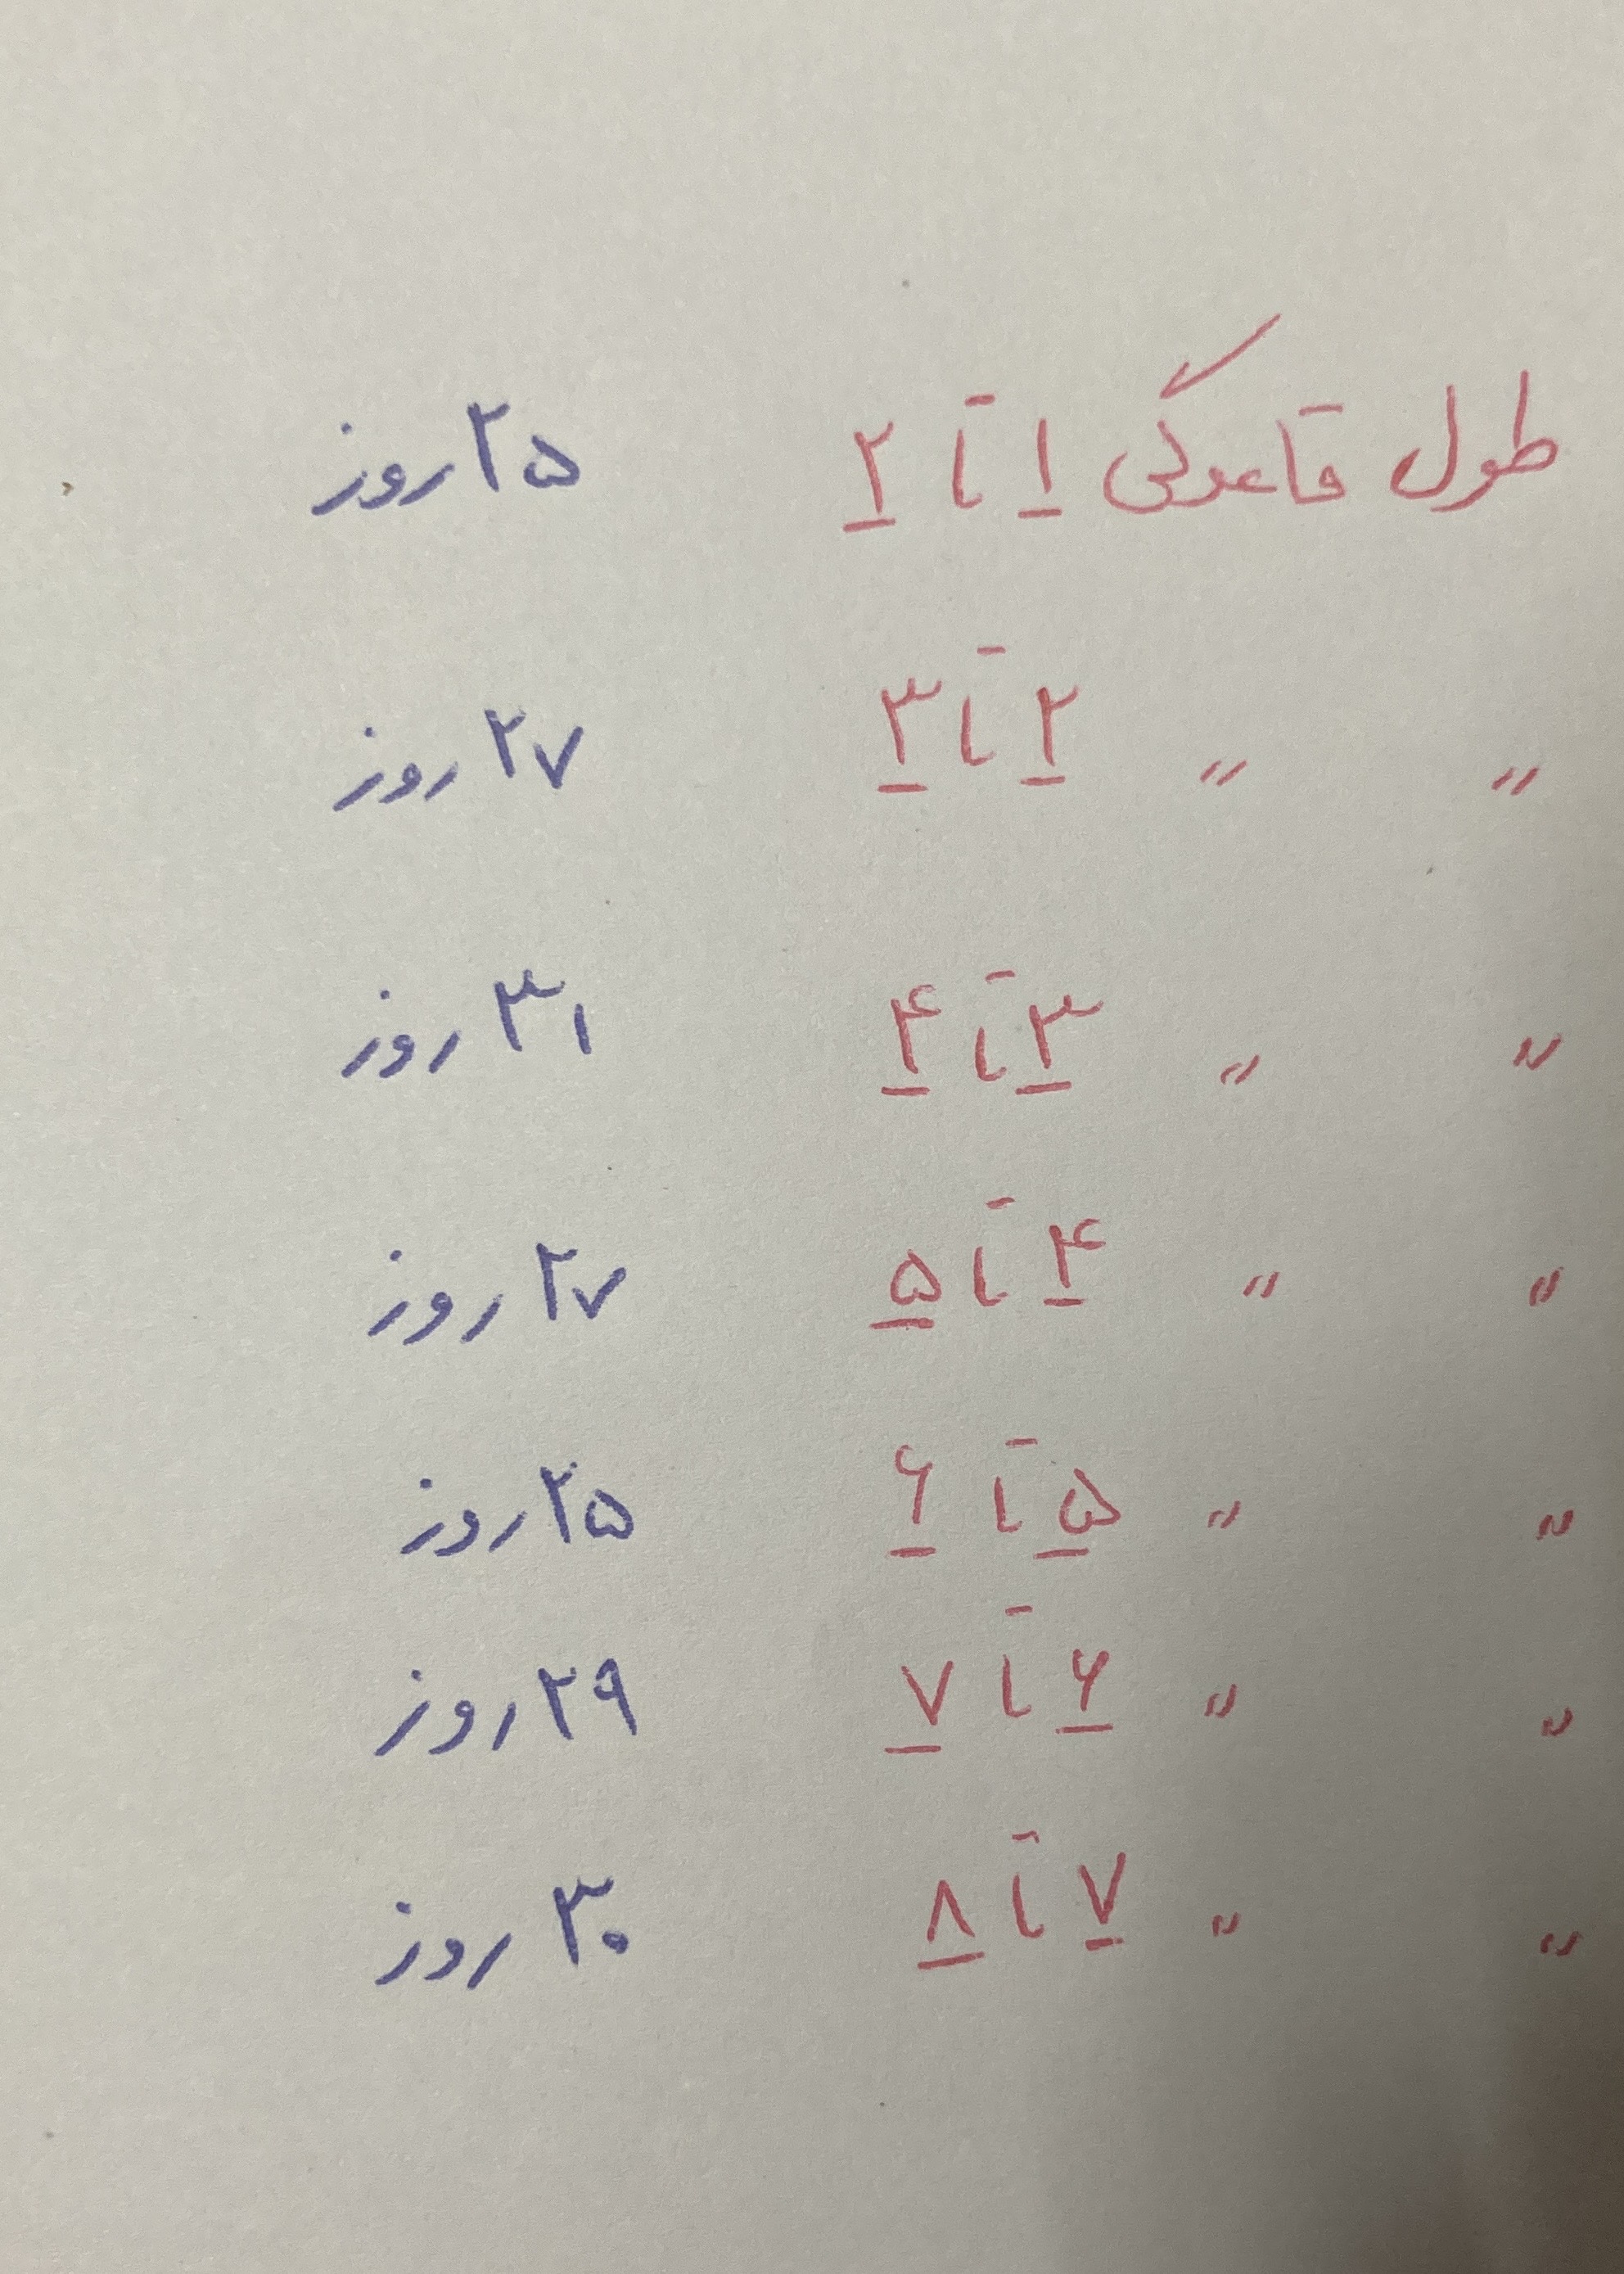 طول قاعدگی ۱ تا ۲ ۲۵ روز
〃 〃 ۲ تا ۳ ۲۷ روز
〃 〃 ۳ تا ۴ ۳۱ روز
〃 〃 ۴ تا ۵ ۲۷ روز
〃 〃 ۵ تا ۶ ۲۵ روز
〃 〃 ۶ تا ۷ ۲۹ روز
〃 〃 ۷ تا ۸ ۳۰ روز